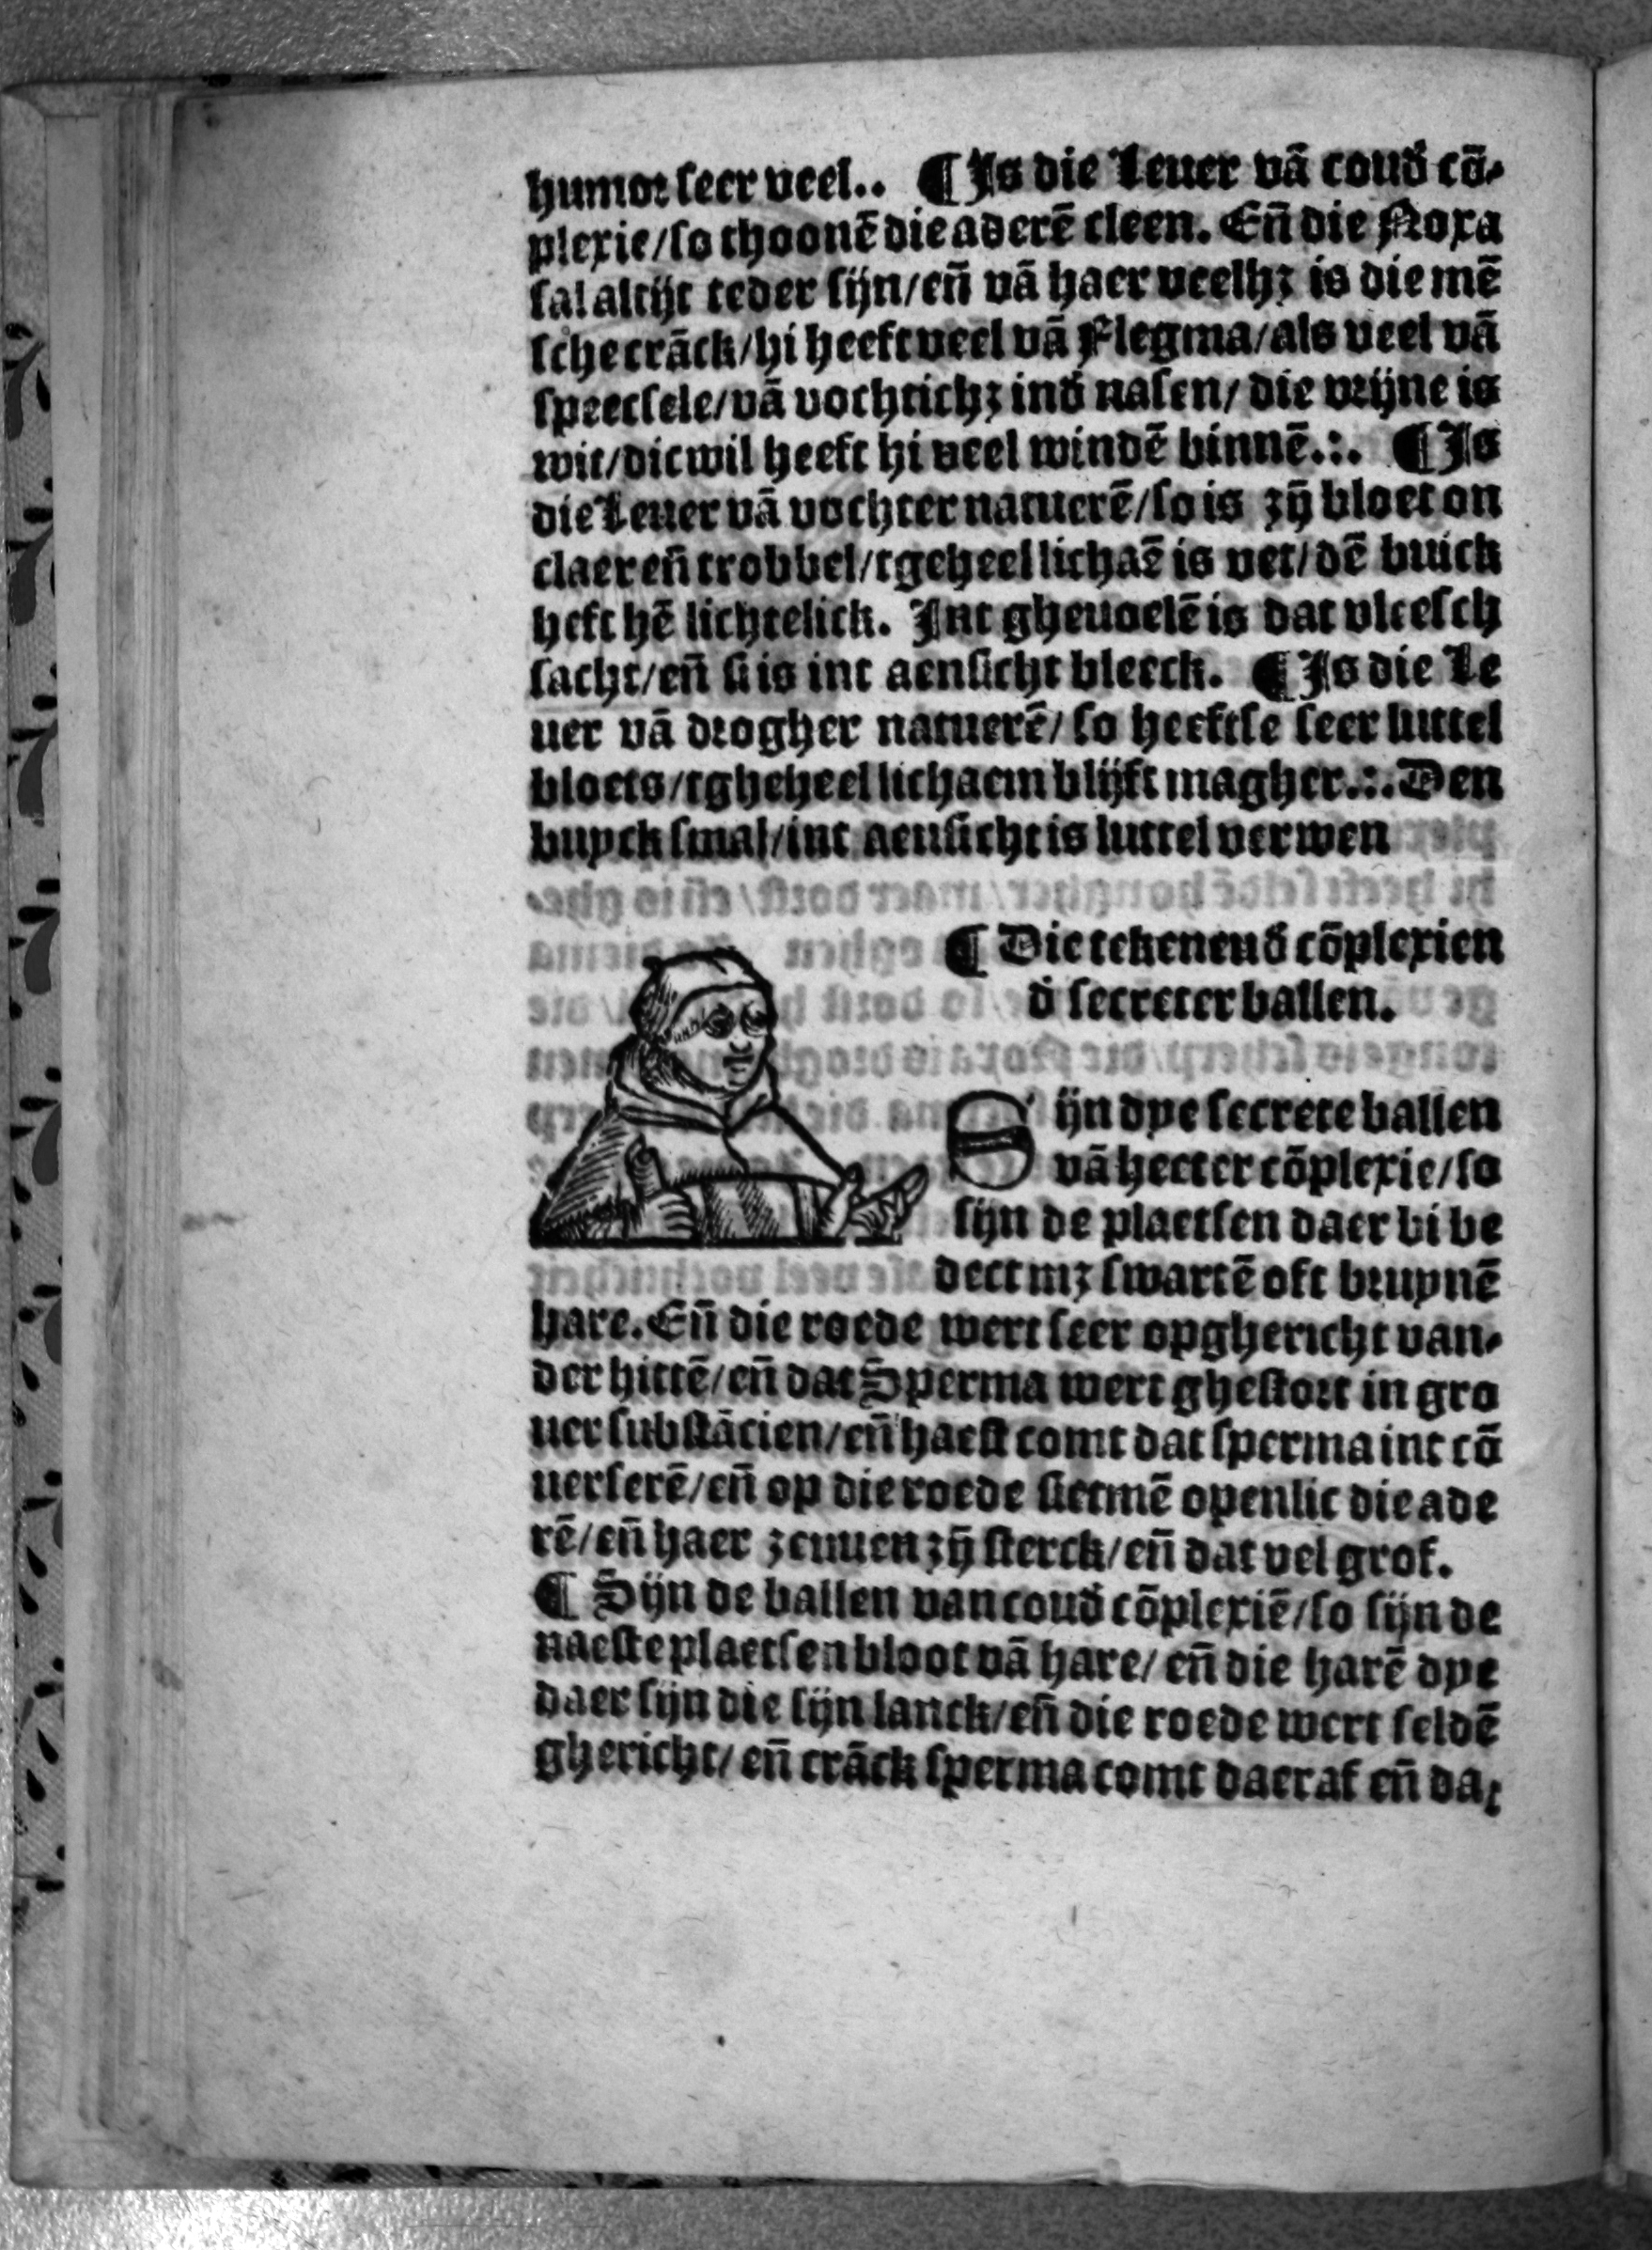 humor seer veel.. ¶ Is die Leuer vā coud̄ cō-
plexie/so thoonē die aderē cleen. Eñ die Noxa
sal altijt teder sijn/eñ vā haer veelhꝫ is die mē
sche crāck/hi heeft veel vā Flegma/als veel vā
speecsele/vā vochtichꝫ ind̄ nasen/ die vrijne is
wit/dicwil heeft hi veel windē binnē.:. ¶ Is
die Leuer vā vochter natuerē/so is zȳ bloet on
claer eñ trobbel/tgeheel lichaē is vet/dē buick
heft hē lichtelick. Int gheuoelē is dat vleesch
sacht/eñ si is int aensicht bleeck. ¶ Is die Le
uer vā drogher natuerē/ so heeftse seer luttel
bloets/tgheheel lichaem blijft magher.:. Den
buyck smal/int aensicht is luttel verwen
¶ Die tekenen d̄ cōplexien
d̄ secreter ballen.
Sijn dye secrete ballen
vā heeter cōplexie/so
sijn de plaetsen daer bi be
dect mꝫ swartē oft bruynē
hare. Eñ die roede wert seer opghericht van-
der hittē/eñ dat Sperma wert ghestort in gro
uer substācien/eñ haest comt dat sperma int cō
uerserē/eñ op die roede sietmē openlic die ade
rē/eñ haer zenuen zȳ sterck/eñ dat vel grof.
¶ Sijn de ballen van coud̄ cōplexiē/so sijn de
naeste plaetsen bloot vā hare/ eñ die harē dye
daer sijn die sijn lanck/eñ die roede wert seldē
ghericht/ eñ crāck sperma comt daer af eñ dat